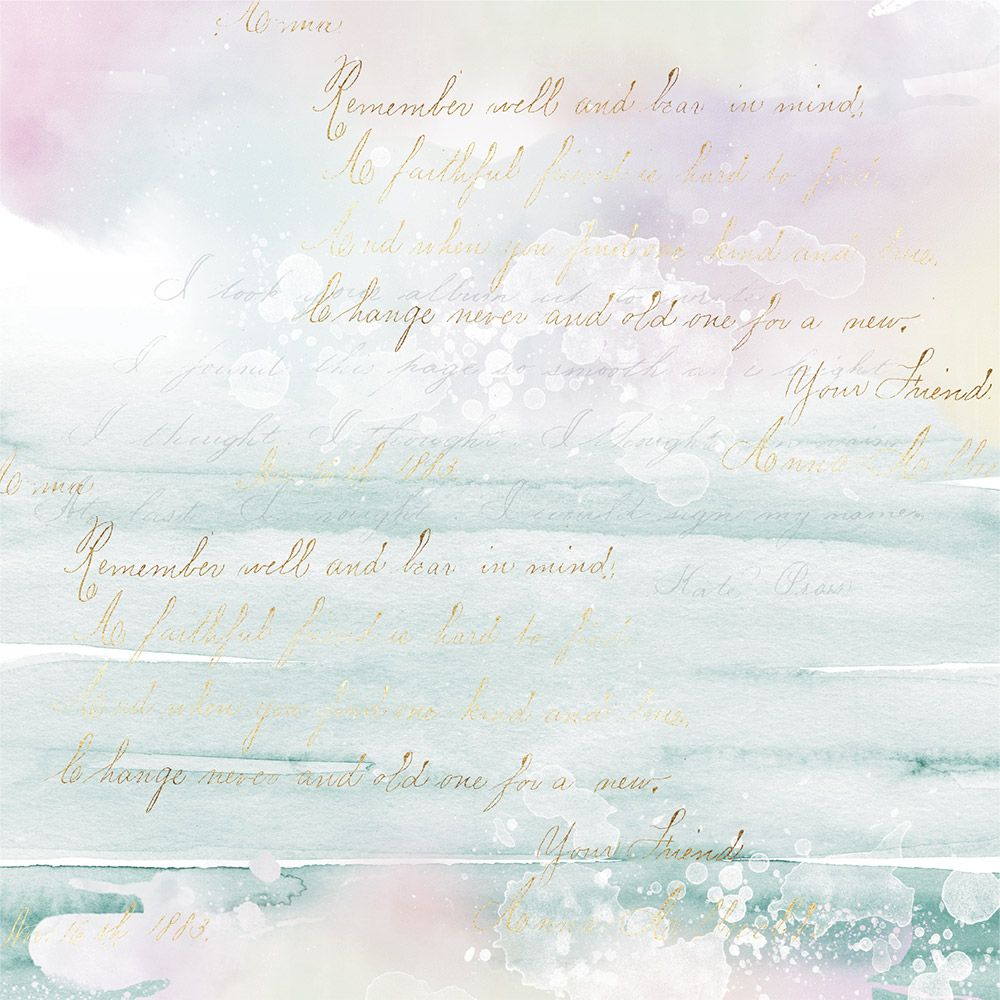 Remember well and bear in mind,
A faithful friend is hard to find,
And when you find one kind and true,
I took your album up to write
Change never and old one for a new.
I found this page so smooth and bright
Your Friend
I thought, I thought, I thought in vain
Anna
Nov. 16th 1883.
At last I thought I would sign my name
Remember well and bear in mind,
Kate
A faithful friend is hard to find
And when you find one kind and true,
Change never and old one for a new.
Your Friend
Anna
Nov. 16th 1883.